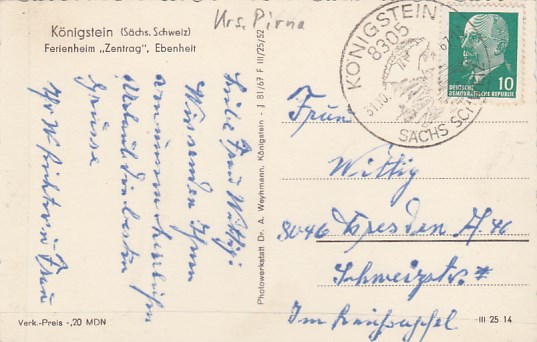 Krs. Pirna
Königstein (Sächs. Schweiz)
Ferienheim „Zentrag", Ebenheit
Liebe Frau Wittig!
Wir senden Ihnen
von unserem herrlichen
Urlaub die besten
Grüsse
Ihr W. und Frau
Verk.-Preis -,20 MDN
Photowerkstatt Dr. A. Weyhmann, Königstein - J 81/67 F III/25/52
KÖNIGSTEIN
8305
SÄCHS SCHW
DEUTSCHE
DEMOKRATISCHE REPUBLIK
10
Frau
Wittig
8046 Dresden A. 46
Schweizstr.
Im
III 25 14